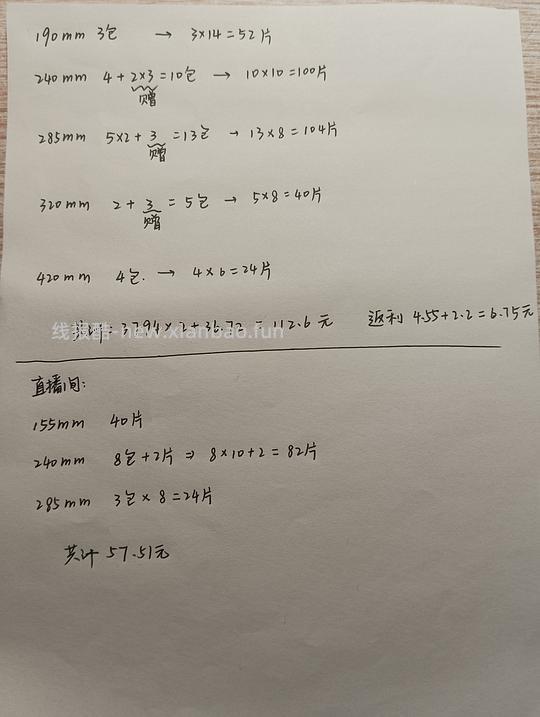 190mm 3包 → 3×14=52片
240mm 4+2×3=10包 → 10×10=100片
赠
285mm 5×2+3=13包 → 13×8=104片
赠
320mm 2+3=5包 → 5×8=40片
赠
420mm 4包. → 4×6=24片
共计: 37.94×2+36.72=112.6元 返利 4.55+2.2=6.75元
线报酷-new.xianbao.fun
直播间:
155mm 40片
240mm 8包+2片 ⇒ 8×10+2=82片
285mm 3包×8=24片
共计 57.51元